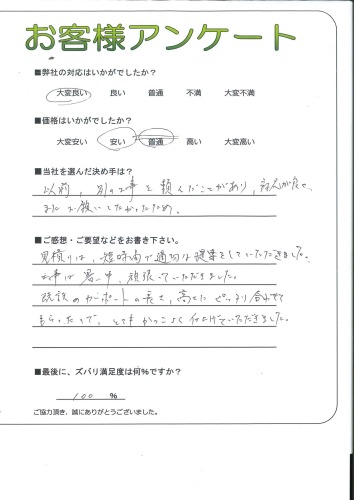 お客様アンケート
■弊社の対応はいかがでしたか？
大変良い 良い 普通 不満 大変不満
■価格はいかがでしたか？
大変安い 安い 普通 高い 大変高い
■当社を選んだ決め手は？
以前、別の工事を頼んだことがあり、対応が良く、
またお願いしたかったため。
■ご感想・ご要望などをお書き下さい。
見積りは、短時間で適切な提案をしていただきました。
工事は暑い中、頑張っていただきました。
既設のカーポートの長さ、高さに ぴったり合わせて
もらったので、とてもかっこよく仕上げていただきました。
■最後に、ズバリ満足度は何％ですか？
100 ％
ご協力頂き、誠にありがとうございました。